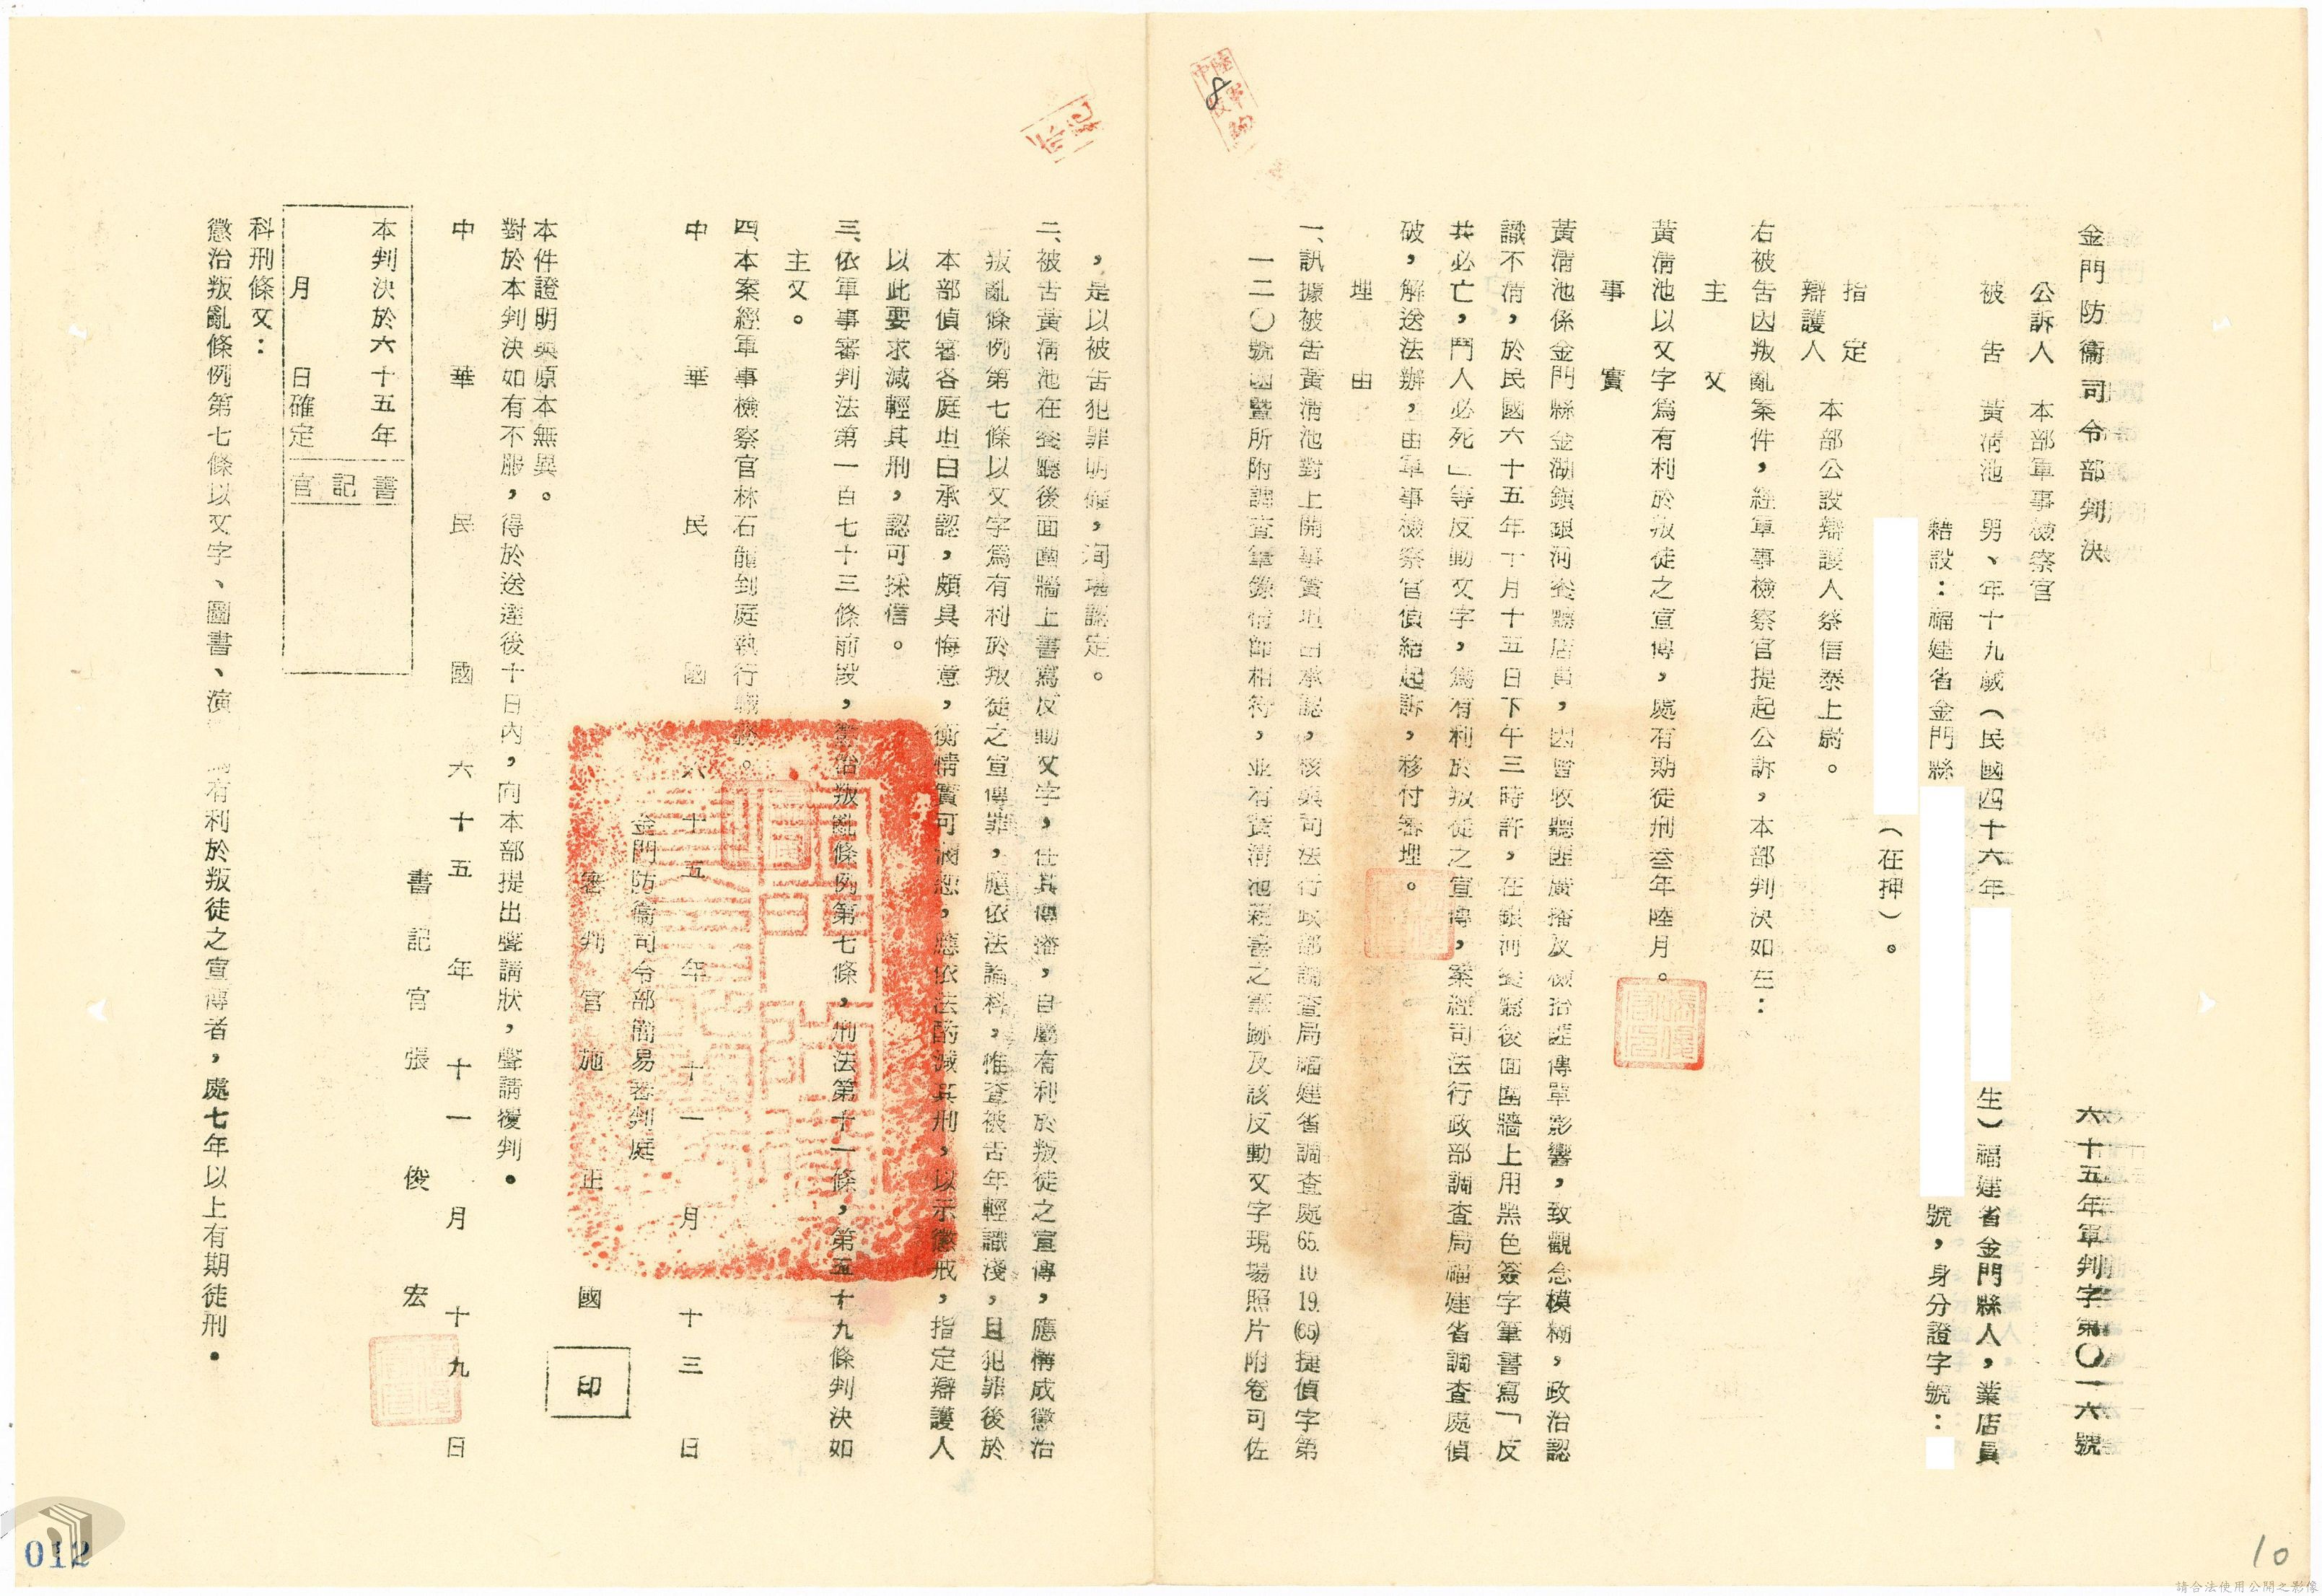 金門防衞司令部判決
六十五年軍判字第〇一六號
公訴人　本部軍事檢察官
被告　黃清池　男、年十九歲（民國四十六年
生）福建省金門縣人，業店員
籍設：福建省金門縣
號，身分證字號：
（在押）。
指定
辯護人　本部公設辯護人蔡信泰上尉。
右被告因叛亂案件，經軍事檢察官提起公訴，本部判決如左：
主文
黃清池以文字為有利於叛徒之宣傳，處有期徒刑叁年陸月。
事實
黃清池係金門縣金湖鎮銀河餐廳店員，因曾收聽匪廣播及檢拾匪傳單影響，致觀念模糊，政治認
識不清，於民國六十五年十月十五日下午三時許，在銀河餐廳後面圍牆上用黑色簽字筆書寫「反
共必亡，鬥人必死」等反動文字，為有利於叛徒之宣傳，案經司法行政部調查局福建省調查處偵
破，解送法辦，由軍事檢察官偵結起訴，移付審理。
理由
一、訊據被告黃清池對上開事實坦白承認，核與司法行政部調查局福建省調查處65.10.19.(65)捷偵字第
一二〇號函暨所附調查筆錄情節相符，並有黃清池親書之筆跡及該反動文字現場照片附卷可佐
，是以被告犯罪明確，洵堪認定。
二、被告黃清池在餐廳後面圍牆上書寫反動文字，任其傳播，自屬有利於叛徒之宣傳，應構成懲治
叛亂條例第七條以文字為有利於叛徒之宣傳罪，應依法論科，惟查被告年輕識淺，且犯罪後於
本部偵審各庭坦白承認，頗具悔意，衡情實可憫恕，應依法酌減其刑，以示懲戒，指定辯護人
以此要求減輕其刑，認可採信。
三、依軍事審判法第一百七十三條前段，懲治叛亂條例第七條，刑法第十一條，第五十九條判決如
主文。
四、本案經軍事檢察官林石龍到庭執行職務。
中華民國六十五年十一月十三日
金門防衞司令部簡易審判庭
審判官施正國
印
本件證明與原本無異。
對於本判決如有不服，得於送達後十日內，向本部提出聲請狀，聲請覆判。
中華民國六十五年十一月十九日
書記官張俊宏
本判決於六十五年
月　日確定
書記官
科刑條文：
懲治叛亂條例第七條以文字、圖書、演　有利於叛徒之宣傳者，處七年以上有期徒刑。
8
10
012
請合法使用公開之影像